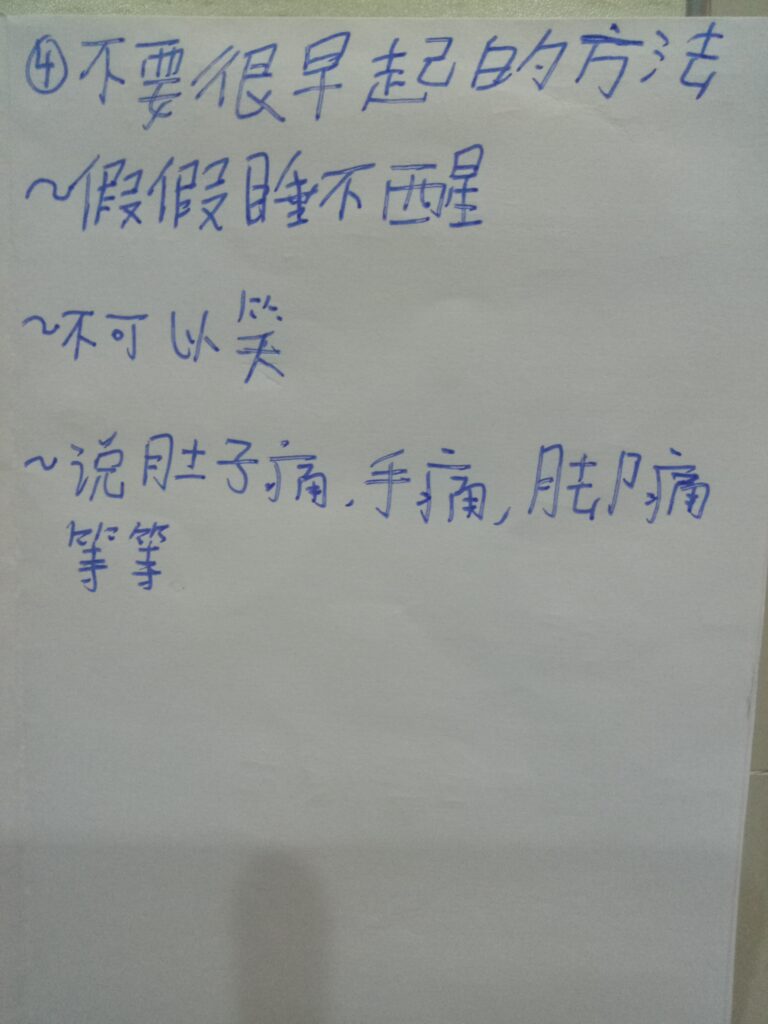 ④不要很早起的方法
~假假睡不醒
~不可以笑
~说肚子痛.手痛,脚痛
等等